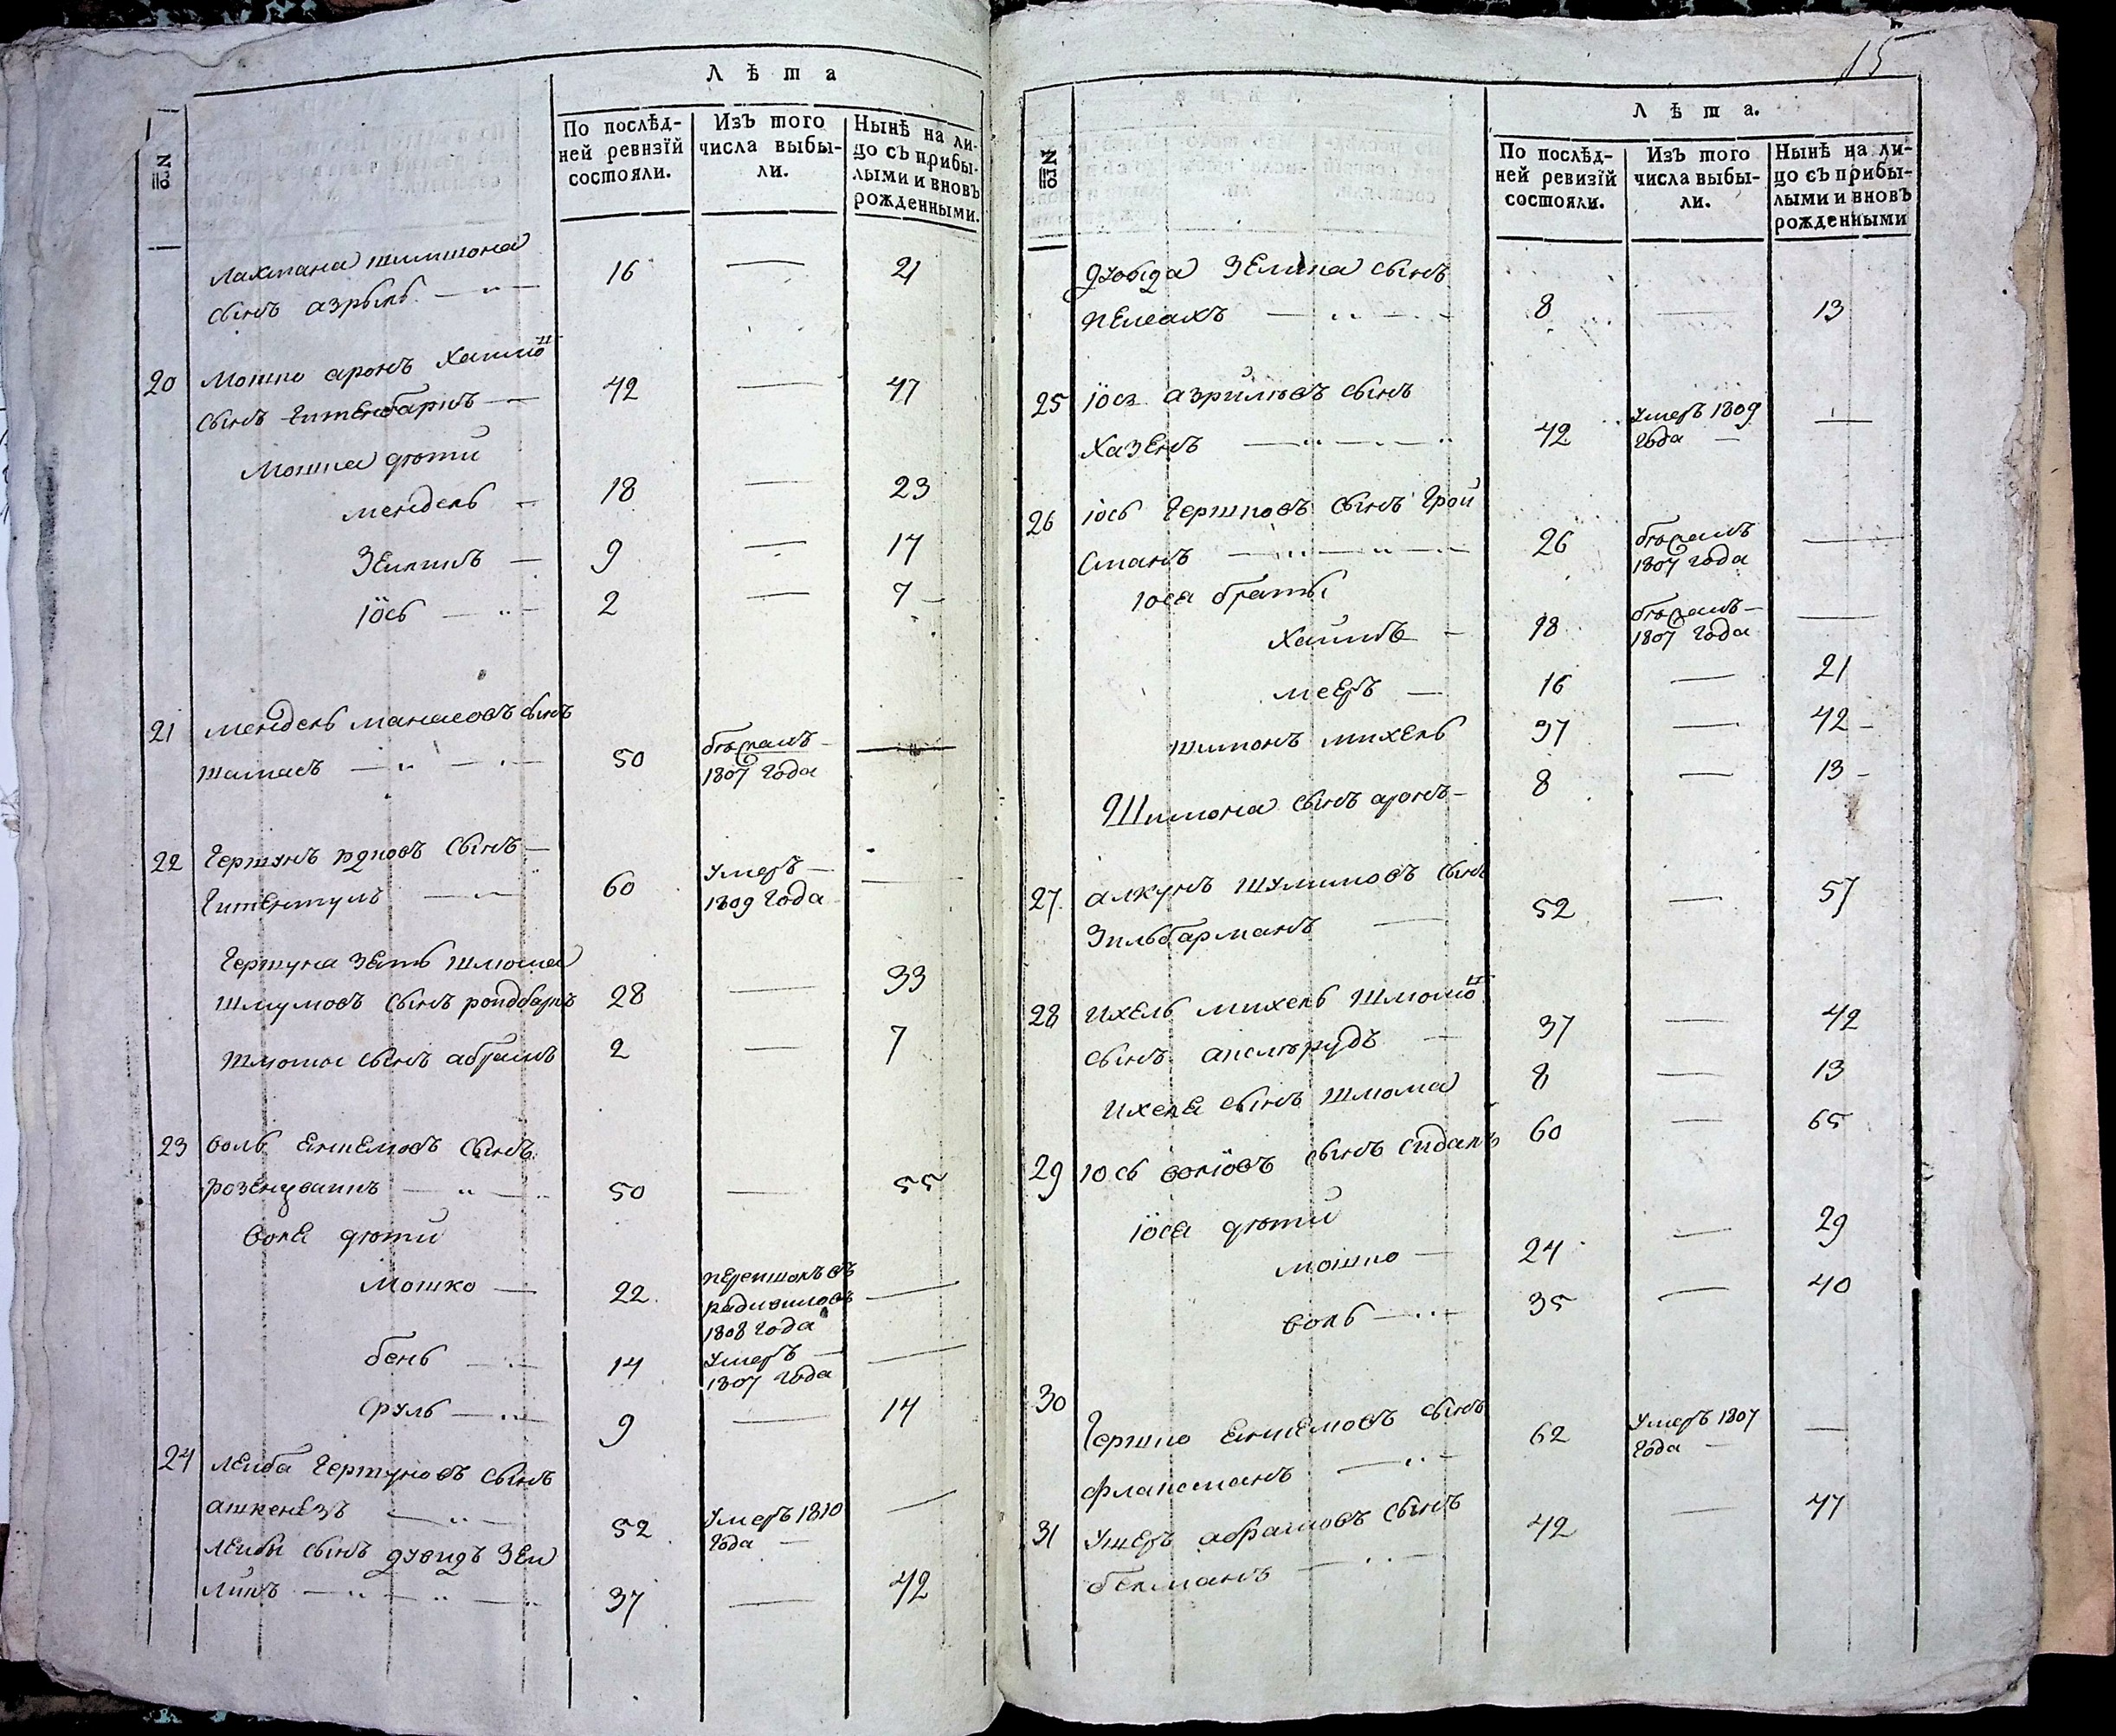 Лѣта
№
По послѣд-
ней ревизїй
состояли.
Изъ того
числа выбы-
ли.
Нынѣ на ли-
цо съ прибы-
лыми и вновъ
рожденными.
Лахмана шимшона
сынъ азрыль 16 — 21
20 Мошко аронъ Хаимо
сынъ 42 — 47
Мошка дѣти
мендель — 18 — 23
Зелкинъ — 9 — 14
Їось — 2 — 7
21 мендель манасовъ сынъ
шамасъ — 50 бѣжалъ
1807 года —
22 Гершунъ сынъ —
60 Умеръ —
1809 года —
Гершуна зять шлиома
сынъ 28 — 33
Шлиомы сынъ абрамъ 2 — 7
23 воль сынъ
розенцвайгъ — 50 — 55
воля дѣти
Мошко — 22
радивиловъ
1808 года —
бень — 14 Умеръ —
1807 года —
сруль — 9 — 14
24 леиба Гершуновъ сынъ
ашкенезъ — 52 Умеръ 1810
года —
леибы сынъ дувидъ зей
линъ — 37 — 42
15
Лѣта.
№
По послѣд-
ней ревизїй
состояли.
Изъ того
числа выбы-
ли.
Нынѣ на ли-
цо съ прибы-
лыми и вновъ
рожденными
дувида Зелина сынъ
пейсахъ — 8 — 13
25 їось азрилювъ сынъ
Хазенъ — 42 Умеръ 1809
года —
26 їось Гершковъ сынъ Грой
сманъ — 26 бѣжалъ
1807 года —
їося братья
хаимъ — 18 бѣжалъ —
1807 года —
мееръ — 16 — 21
шимонъ михель 37 — 42
Шимона сынъ аронъ — 8 — 13
27 алкунъ шулимовъ сынъ
Зильбарманъ 52 — 57
28 ихель михель шлиомо
сынъ 37 — 42
ихеля сынъ шлиома 8 — 13
29 їось волїовъ сынъ 60 — 65
їося дѣти
мошко — 24 — 29
воль — 35 — 40
30
Гершко сынъ
62 Умеръ 1807
года —
31 Ушеръ абрамовъ сынъ
42 — 47